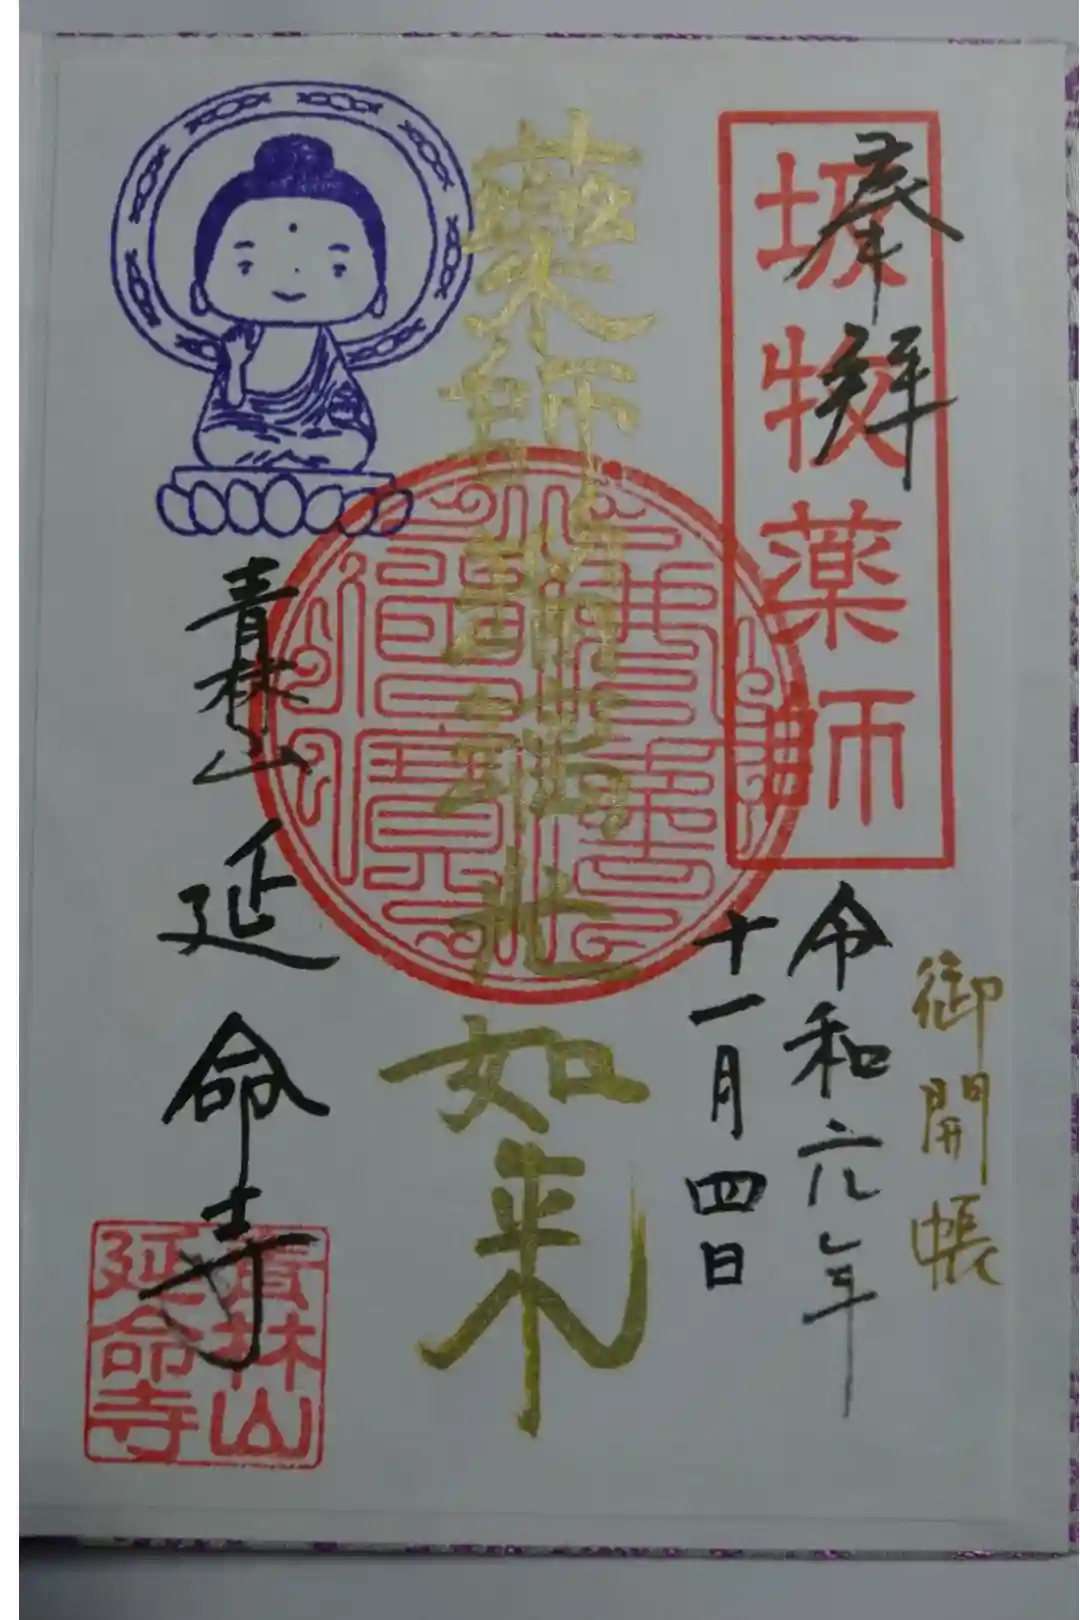 奉拝
薬師
御開帳
令和六年
十一月四日
薬師瑠璃光如来
青林山 延命寺
青林山
延命寺